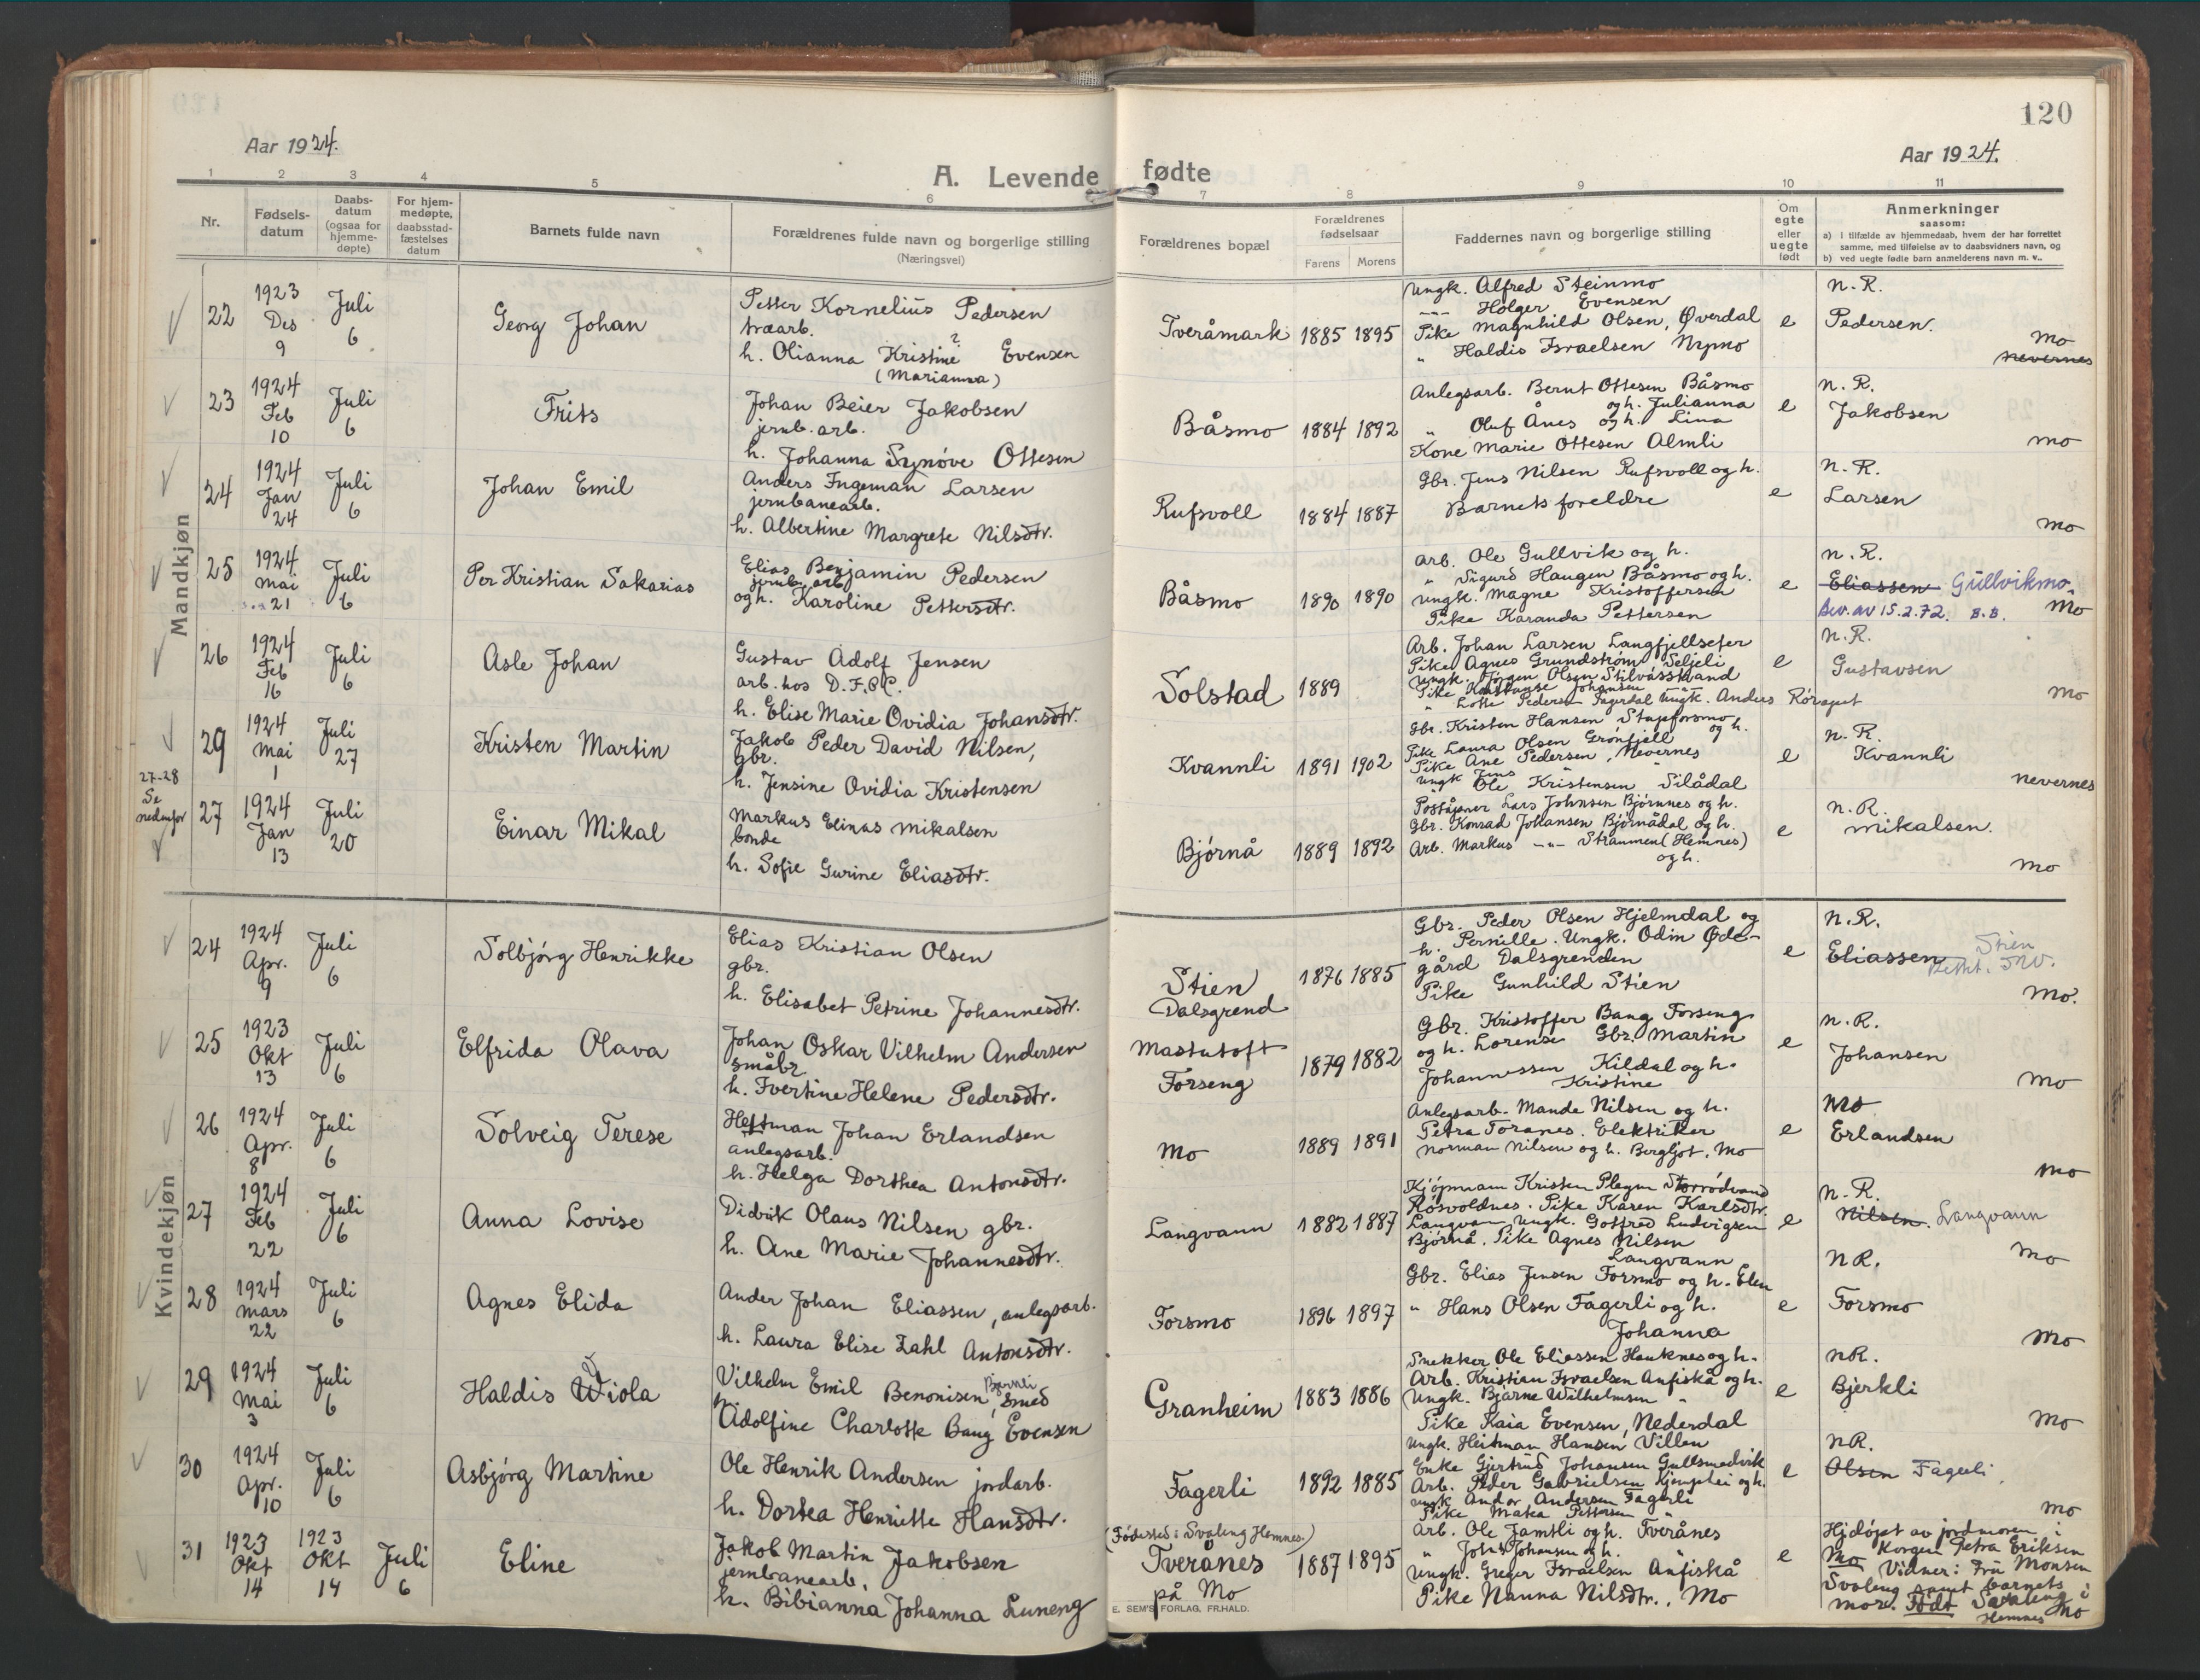 120
Aar 1924.
Aar 1924.
A. Levende fødte
1 2 3 4 5 6 7 8 9 10 11
Nr.
Fødsels-
datum
Daabs-
datum
(ogsaa for
hjemme-
døpte)
For hjem-
medøpte,
daabsstad-
fæstelses
datum
Barnets fulde navn
Forældrenes fulde navn og borgerlige stilling
(Næringsvei)
Forældrenes bopæl
Forældrenes
fødselsaar
Farens Morens
Faddernes navn og borgerlige stilling
Om
egte
eller
uegte
født
Anmerkninger
saasom:
a) i tilfælde av hjemmedaab, hvem der har forrettet
samme, med tilføielse av to daabsvidners navn, og
b) ved uegte fødte barn anmelderens navn m. v..
Mandkjøn
22
1923
Des
9
Juli
6
Georg Johan
Petter Kornelius Pedersen
træarb.
?
h. Olianna Kristine Evensen
(Marianna)
Tveråmark
1885 1895
Ungk. Alfred Steinmo
-"- Holger Evensen
Pike Magnhild Olsen, Øverdal
" Haldis Israelsen Nymo
e
n. R.
Pedersen.
Mo
Nevernes
23
1924
Feb
10
Juli
6
Frits
Johan Beier Jakobsen
jernb. arb.
h. Johanna Synöve Ottesen
Båsmo
1884 1892
Anlegsarb. Bernt Ottesen Båsmo
og h. Julianna
" Oluf Ånes og h. Lina
Kone Marie Ottesen Almli
e
n. R.
Jakobsen
Mo
24
1924
Jan
24
Juli
6
Johan Emil
Anders Ingeman Larsen
jernbanearb.
h. Albertine Margrete Nilsdtr.
Rufsvoll
1884 1887
Gbr. Jens Nilsen Rufsvoll og h.
Barnets foreldre
e
n. R.
Larsen
Mo
25
1924
Mai
21
Juli
6
Per Kristian Sakarias
Elias Benjamin Pedersen
jernb. arb
og h. Karoline Pettersdtr.
Båsmo
1890 1890
Arb. Ole Gullvik og h.
" Sigurd Haugen Båsmo og h.
Ungk. Magne Kristoffersen
Pike Karanda Pettersen
e
n. R.
Eliassen Gullvikmo.
Bev. av 15.2.72. B.B. Mo
26
1924
Feb
16
Juli
6
Asle Johan
Gustav Adolf Jensen
arb. hos D.F.&C.
h. Elise Marie Ovidia Johansdtr.
Solstad
1889
Arb. Johan Larsen Langfjellseter
Pike Agnes Grundstrøm Seljeli
Ungk. Jörgen Olsen Stilvåsstrand
Pike Johansen
" Lotte Pedersen Ungk. Anders
e
n. R.
Gustavsen
Mo
29
1924
Mai
1
Juli
27
Kristen Martin
Jakob Peder David Nilsen,
Gbr.
h. Jensine Ovidia Kristensen
Kvannli
1891 1902
Gbr. Kristen Hansen Stupforsmo
og h.
Pike Laura Olsen Grönfjell
Pike Ane Pedersen, Nevernes
Ungk Jens " "
Ole Kristensen Silådal
e
n. R.
Kvannli
Nevernes
27-28
Se
nedenfor
27
1924
Jan
13
Juli
20
Einar Mikal
Markus Elinas Mikalsen
bonde
h. Sofie Gurine Eliasdtr.
Bjørnå
1889 1892
Poståpner Lars Johnsen Bjørnnes og h.
Gbr. Konrad Johansen Bjørnådal og h.
Arb. Markus -"- Straumen (Hemnes)
og h.
e
n. R.
Mikalsen.
Mo
Kvindekjøn
24
1924
Apr.
9
Juli
6
Solbjørg Henrikke
Elias Kristian Olsen
gbr.
h. Elisabet Petrine Johannesdtr.
Stien
Dalsgrend
1876 1885
Gbr. Peder Olsen Hjelmdal og
h. Pernille. Ungk. Odin Øde-
gård Dalsgrenden
Pike Gunhild Stien
e
n. R.
Eliassen
Stien
Mo.
25
1923
Okt
13
Juli
6
Elfrida Olava
Johan Oskar Vilhelm Andersen
småbr
h. Ivertine Helene Pedersdtr.
Mastutoft
Forseng
1879 1882
Gbr. Kristoffer Bang Forseng
og h. Lorense Gbr. Martin
Johannessen Kildal og h.
Kristine
e
n. R.
Johansen
Mo
26
1924
Apr.
8
Juli
6
Solveig Terese
Heftman Johan Erlandsen
anlegsarb.
h. Helga Dorthea Antonsdtr.
Mo
1889 1891
Anlegsarb. Mande Nilsen og h.
Petra Toranes. Elektriker
Norman Nilsen og h. Bergljot, Mo
e
Mo
Erlandsen
Mo
27
1924
Feb
22
Juli
6
Anna Lovise
Didrik Olaus Nilsen gbr.
h. Ane Marie Johannesdtr.
Langvann
1882 1887
Kjøpmann Kristen Plegen
Røsvoldnes. Pike Karen Karlsdtr.
Langvan Ungk. Gotfred Ludvigsen
Bjørnå. Pike Agnes Nilsen
Langvann
e
n. R.
Nilsen. Langvann
Mo
28
1924
Mars
22
Juli
6
Agnes Elida
Ander Johan Eliassen, anlegsarb.
h. Laura Elise Zahl Antonsdtr.
Forsmo
1896 1897
Gbr. Elias Jensen Forsmo og h. Elen
" Hans Olsen Fagerli og h.
Johanna
e
n R.
Forsmo
Mo
29
1924
Mai
3
Juli
6
Haldis Wiola
Vilhelm Emil Benonisen, Smed
Bjerkli
h.
Adolfine Charlotte Bang Evensen
Granheim
1883 1886
Snekker Ole Eliassen Hauknes og h.
Arb. Kristian Israelsen Anfiskå og h.
Ungk. Bjarne Wilhelmsen "
Pike Kaia Evensen, Nederdal
e
n R.
Bjerkli
Mo
30
1924
Apr.
10
Juli
6
Asbjørg Martine
Ole Henrik Andersen jordarb.
h. Dortea Henriette Hansdtr.
Fagerli
1892 1885
Ungk. Heitman Hansen Villen
Enke Gjertrud Johansen Gullsmedvik
Arb. Peder Gabrielsen og h.
Ungk Andor Andersen Fagerli
Pike Matea Pettersen "
e
n R.
Olsen Fagerli
Mo
31
1923
Okt
14
1923
Okt
14
Juli
6
Eline
Jakob Martin Jakobsen
jernbanearb.
h. Bibianna Johanna Luneng
(Fødested: Svaleng Hemnes.)
Tverånes
på Mo
1887 1895
Arb. Ole Jamtli og h. Tverånes
" John Johansen og h. "
Ungk. Greger Israelsen Anfiskå
Pike Nanna Nilsdtr., Mo
e
Hjdøpt av jordmoren i
Korgen Petra Eriksen
Mo Vidner: Fru Monsen
Svaleng samt barnets
mor. Født Svaleng i
Hemnes Mo
E. SEM'S FORLAG, FR.HALD.